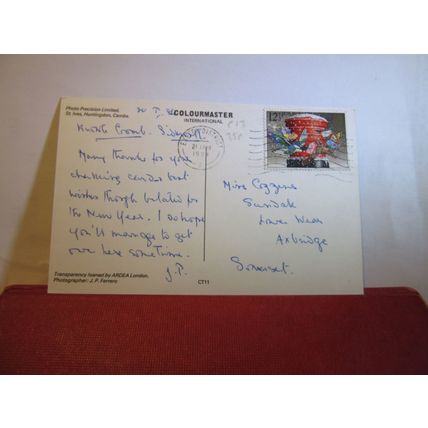 Photo Precision Limited,
St. Ives, Huntingdon, Cambs.
COLOURMASTER
INTERNATIONAL
12½
Many thanks for your
charming card & best
wishes though belated for
the New Year. I do hope
you'll manage to get
over here sometime.
J.P.
Miss Coggins
Sunidale
Lower Weare
Axbridge
Somerset.
Transparency loaned by ARDEA London.
Photographer: J. P. Ferrero
CT11